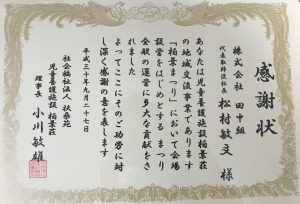 感謝状
株式会社 田中組
代表取締役社長 松村敏文 様
あなたは児童養護施設柏葉荘
の地域交流事業であります
「柏葉まつり」において会場
設営をはじめとする まつり
全般の運営に多大な貢献をさ
れました
よってここにそのご功労に対
し深く感謝の意を表します
平成三十年九月二十七日
社会福祉法人 扶桑苑
児童養護施設 柏葉荘
理事長 小川敏雄